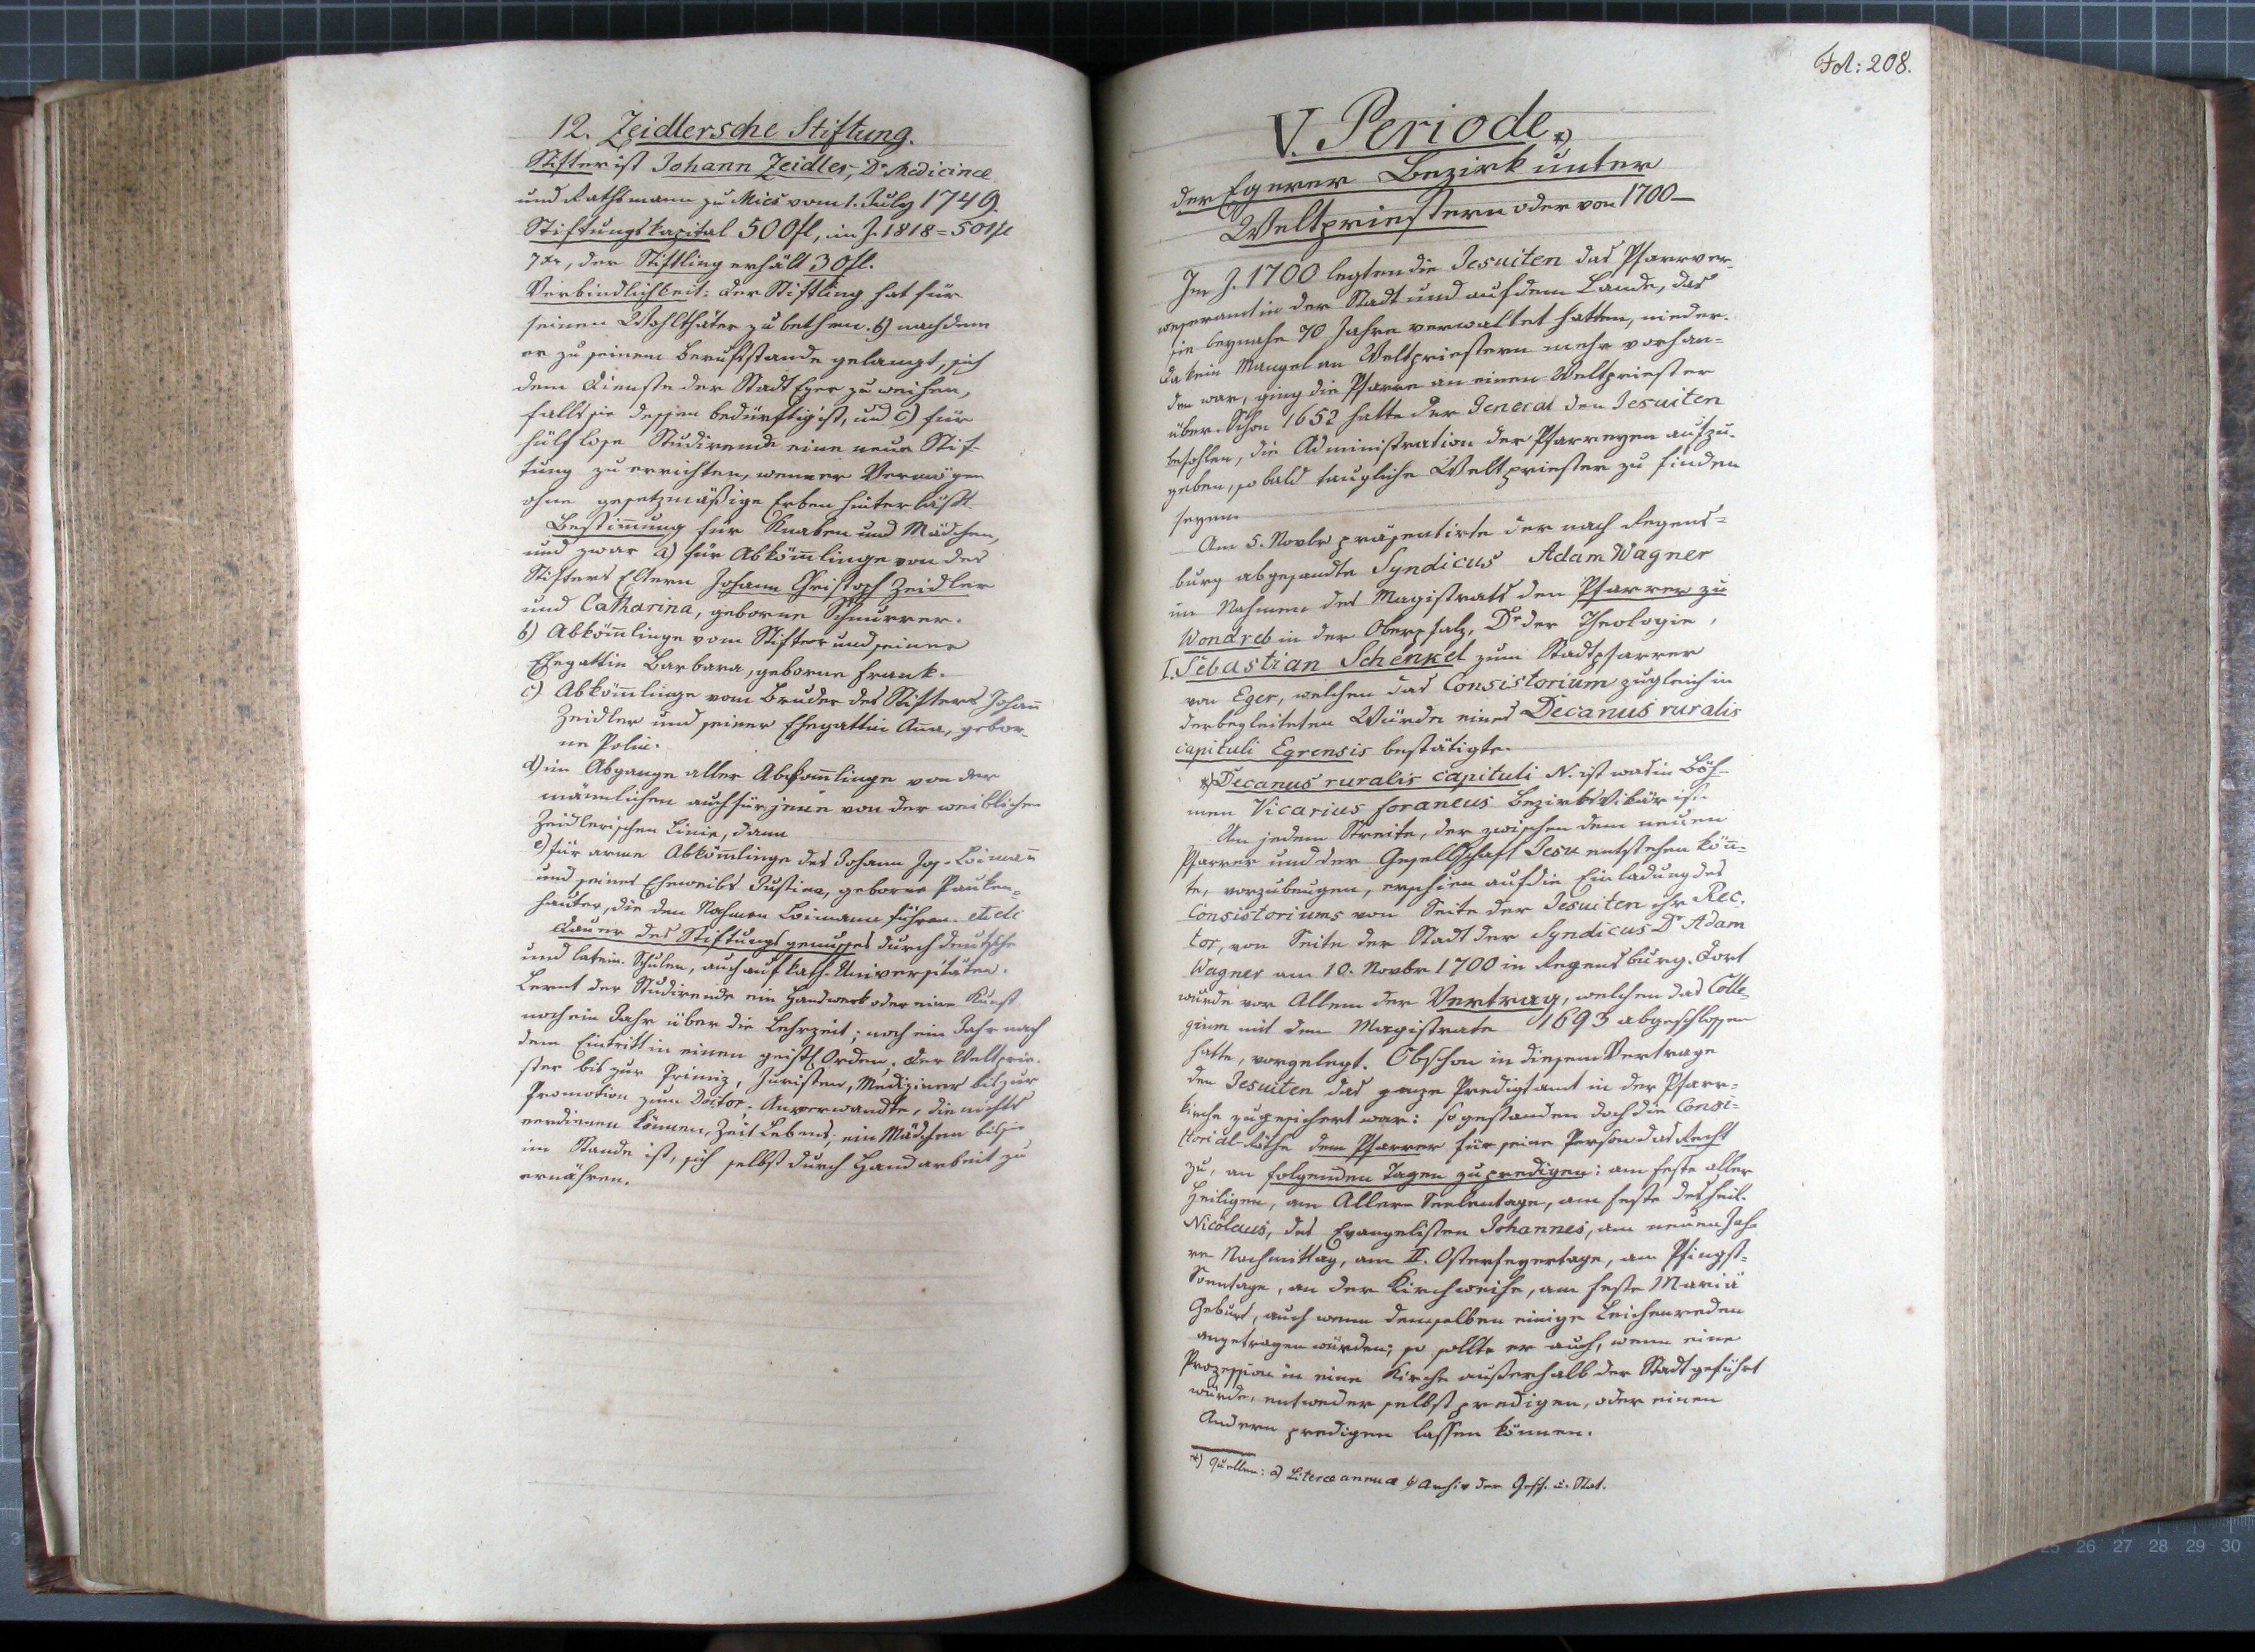 12. Zeidlersche Stiftung.
Stifter ist Johann Zeidler, Dr Medicinæ
und Rathsmann zu Mies vom 1. July 1749.
Stiftungskapital 500fl, im J. 1818 = 501fl
7xr, der Stiftling erhält 30fl.
Verbindlichkeit: der Stiftling hat für
seinen Wohlthäter zu bethen. b) nachdem
er zu seinem Berufsstande gelangt, sich
dem Dienste der Stadt Eger zu weihen,
falls sie dessen bedürftig ist, und c) für
hülflose Studirende eine neue Stif-
tung zu errichten, wenn er Vermögen
ohne gesetzmäßige Erben hinterläßt.
Bestim̄ung für Knaben und Mädchen,
und zwar a) für Abköm̄linge von des
Stifters Eltern Johann Christoph Zeidler
und Catharina, geborne Schnurrer.
b) Abköm̄linge vom Stifter und seiner
Ehegattin Barbara, geborne Frank.
c) Abköm̄linge vom Bruder des Stifters Johan̄
Zeidler und seiner Ehegattin An̄a, gebor-
ne Polin.
d) im Abgange aller Abköm̄linge von der
männlichen auch für jene von der weiblichen
Zeidlerischen Linie, dann
e) für arme Abköm̄linge des Johann Jos. Loiman̄
und seines Eheweibs Justina, geborne Pauken-
hauter, die den Nahmen Loimann führen.
Dauer des Stiftungsgenusses durch deutsche
und latein. Schulen, auch auf kath. Universitäten.
Lernt der Studirende ein Handwerk oder eine Kunst,
noch ein Jahr über die Lehrzeit; noch ein Jahr nach
dem Eintritt in einen geistl. Orden; der Weltprie-
ster bis zur Primiz, Juristen, Mediziner bis zur
Promotion zum Doctor; Anverwandte, die nichts
verdienen können, Zeit Lebens; ein Mädchen bis sie
im Stande ist, sich selbst durch Handarbeit zu
ernähren.
Fol: 208.
V. Periode. *)
der Egerer Bezirk unter
Weltpriestern oder von 1700 —
Im J. 1700 legten die Jesuiten das Pfarrver-
weseramt in der Stadt und auf dem Lande, das
sie beynahe 70 Jahre verwaltet hatten, nieder.
Da kein Mangel an Weltpriestern mehr vorhan-
den war, ging die Pfarre an einen Weltpriester
über. Schon 1652 hatte der General den Jesuiten
befohlen, die Administration der Pfarreyen aufzu-
geben, so bald taugliche Weltpriester zu finden
seyen.
Am 5. Novbr präsentirte der nach Regens-
burg abgesandte Syndicus Adam Wagner
im Nahmen des Magistrats den Pfarrer zu
Wondreb in der Oberpfalz, Dr der Theologie,
I. Sebastian Schenkel zum Stadtpfarrer
von Eger, welchen das Consistorium zugleich in
der begleiteten Würde eines Decanus ruralis
capituli Egrensis bestätigte.
*) Decanus ruralis capituli N. ist was in Böh-
men Vicarius foraneus Bezirksvikär ist.
Um jedem Streite, der zwischen dem neuen
Pfarrer und der Gesellschaft Jesu entstehen kön̄-
te, vorzubeugen, erschien auf die Einladung des
Consistoriums von Seite der Jesuiten ihr Rec-
tor, von Seite der Stadt der Syndicus Dr Adam
Wagner am 10. Novbr 1700 in Regensburg. Dort
wurde vor Allem der Vertrag, welchen das Colle-
gium mit dem Magistrate 1693 abgeschlossen
hatte, vorgelegt. Obschon in diesem Vertrage
den Jesuiten das ganze Predigtamt in der Pfarr-
kirche zugesichert war: so gestanden doch die Consi-
storial-Räthe dem Pfarrer für seine Person das Recht
zu, an folgenden Tagen zu predigen: am Feste aller
Heiligen, am Aller-Seelentage, am Feste des heil.
Nicolaus, des Evangelisten Johannes, am neuen Jah-
re Nachmittag, am II. Osterfeyertage, am Pfingst-
Sonntage, an der Kirchweihe, am Feste Mariä
Geburt, auch wenn demselben einige Leichenreden
angetragen würden; so sollte er auch, wenn eine
Prozession in eine Kirche außerhalb der Stadt geführt
würde, entweder selbst predigen, oder einen
Andern predigen lassen können.
*) Quellen: a) Literæ annuæ b) Archiv der Gesch. u. Stat.